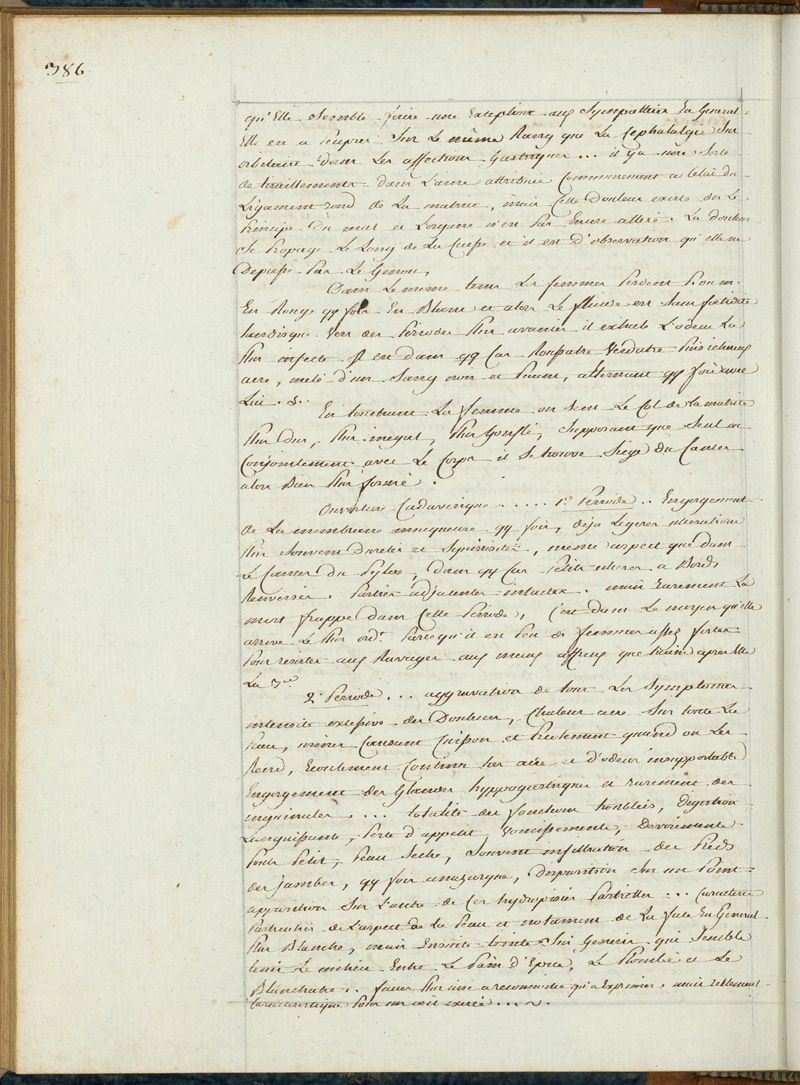 386.
qu'Elle semble faire une Exception aux Sympathies En General.
Elle en a éprès sur le même Rang que La Cephalalgie sur
orbitaire dans Les affections Gastriques ... il y a une sorte
de tiraillements dans L'aine attribuée Communement a celui du
Ligament rond de La matrice, mais Cette Douleur existe des Le
Principe du mal et L'organe n'en Est Encore alteré. La douleur
Se Propage Le Long de La Cuisse et il est d'observation qu'elle ne
Depasse Pas Le Genou,
Dans Le même tems Les femmes Perdent
En Rouge qq fois En Blanc et alors Le fluide est sans fetidité
tandisque Vers des Periodes Plus avancées il exhale L'odeur La
Plus infecte Il en dans qq Cas Roussatre Verdatre Puis ichoreux
acre, melé d'un Sang noir et Puant, alternant qq fois avec
Lui.
En touchant La femme on sent Le Col de La matrice
Plus dur, Plus inegal, Plus Gonflé, Supposant que Seul ou
Conjointement avec Le Corps il se trouve Siege du Cancer
alors Bien Plus formé.
Ouverture Cadaverique ..... 1e Periode .. Engorgement
de La membrane muqueuse qq fois, deja Legeres ulcerations
Plus Souvent Dureté et Squirrosité, meme aspect que dans
Le Cancer du Pylore, dans qq Cas Petits ulceres a Bords
Renversés. Parties adjacentes intactes. mais rarement La
mort frappe dans Cette Periode, c'est dans Le moyen qu'elle
arrive Le Plus ord.t Parcequ'il en Peu de femmes assez fortes
Pour resister aux Ravages aux maux affreux que traine après Elle
La 3e
2e Periode ... aggravation de tous Les Symptomes
intensité excessive des Douleurs, Chaleur acre Sur toute La
Peau, urines Causant Cuisson et quand on Les
Rend, Ecoulement Continu tres acre et d'odeur insupportable
Engorgement des Glandes hyppogastriques et rarement des
inguinales .... totalité des fonctions troublées, digestion
Languissante, Perte d'appetit, Vomissements, Devoiements
Pouls Petit, Peau Seche, Souvent infiltration des Pieds
des jambes, qq fois anazarque, disparition Sur un Point
apparition Sur L'autre de Ces hydropisies Partielles ... Caractere
Particulier de L'aspect de La Peau et notament de La face En General
Plus Blanche, mais Ensuite teinte Sui Generis qui Semble
tenir Le milieu Entre Le Pain d'Epice, Le Plombé et Le
Blanchatre .. facies Plus aisé a reconnoitre qu'a Exprimer, mais reellement
Caracteristique Pour un œil exercé ...